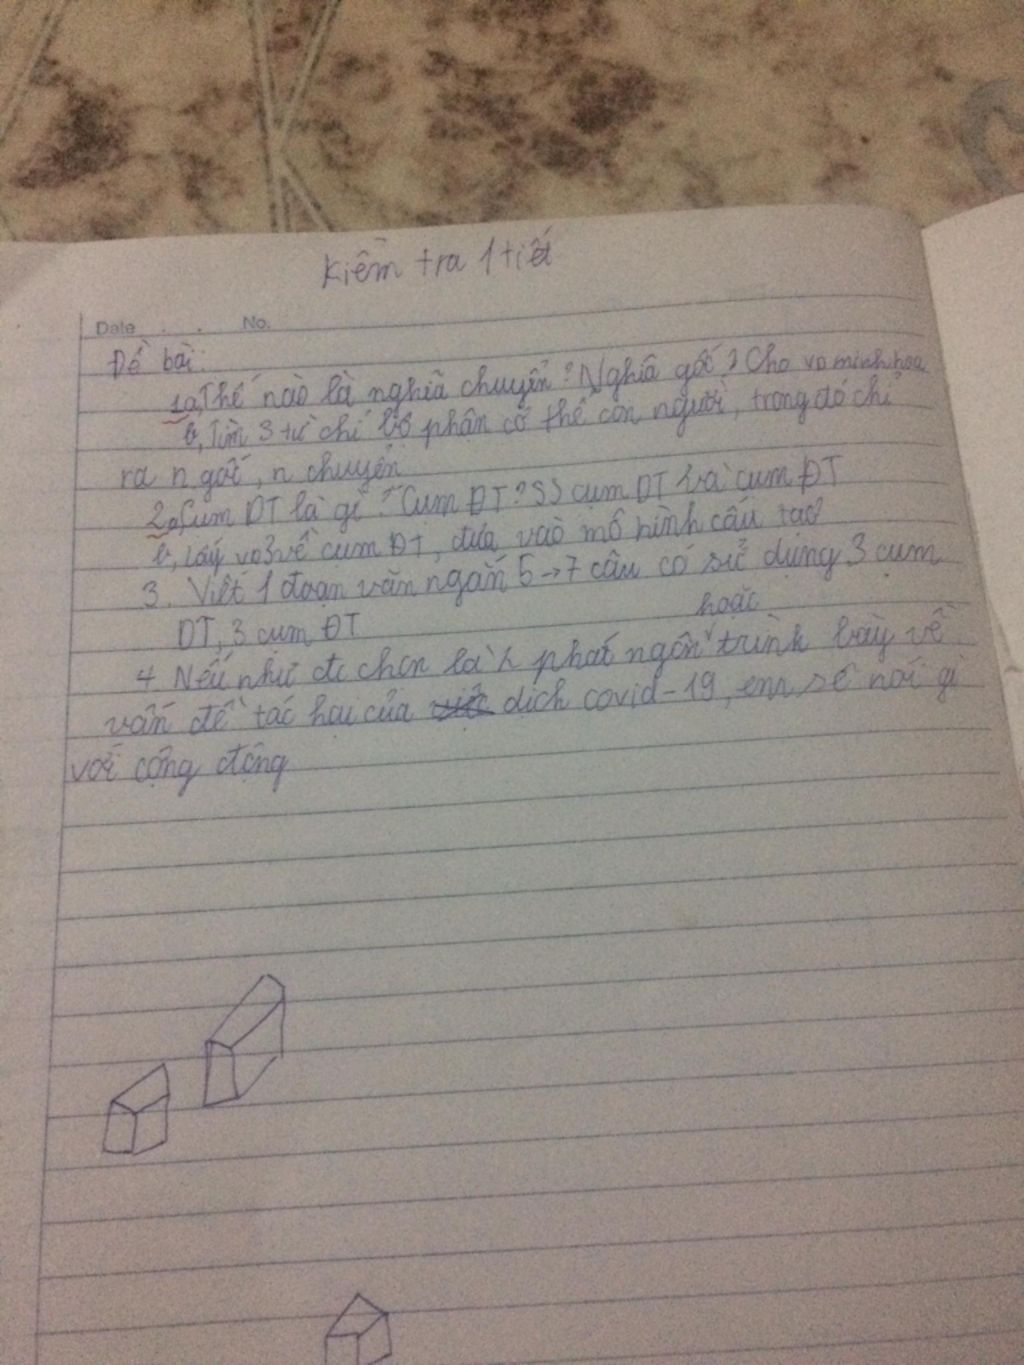 Kiểm tra 1 tiết
Date . . No.
Đề bài:
1a, Thế nào là nghĩa chuyển? Nghĩa gốc? Cho vd minh họa
b, Tìm 3 từ chỉ bộ phận cơ thể con người, trong đó chỉ
ra n gốc, n chuyển
2a, Cụm DT là gì? Cụm ĐT? SS cụm DT và cụm ĐT
b, lấy vd về cụm ĐT, đưa vào mô hình cấu tạo
3. Viết 1 đoạn văn ngắn 5→7 câu có sử dụng 3 cụm
DT, 3 cụm ĐT
hoặc
4. Nếu như đc chọn là phát ngôn trình bày về
vấn đề tác hại của dịch covid-19, em sẽ nói gì
với cộng động